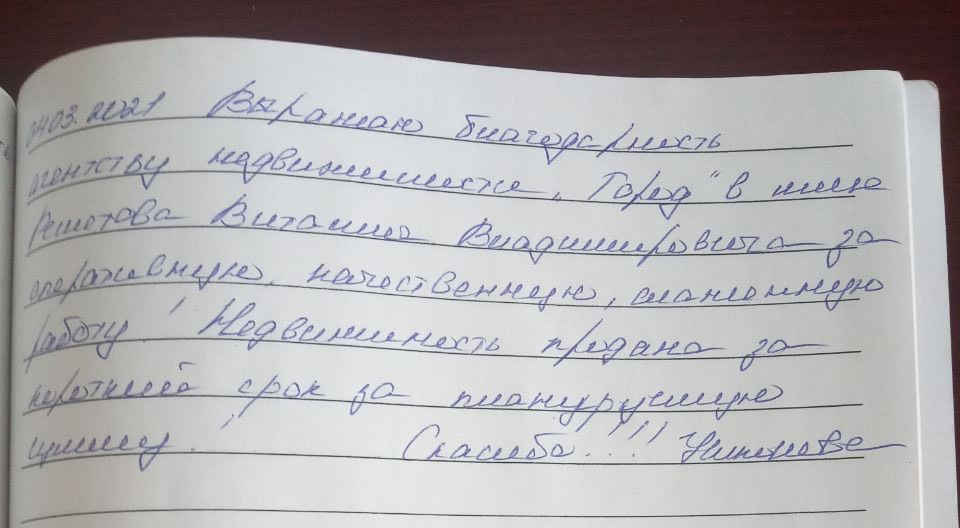 04.03.2021 Выражаю благодарность
агентству недвижимости „Город" в лице
Решетова Виталия Владимировича за
оперативную, качественную, слаженную
работу! Недвижимость продана за
короткий срок за планируемую
цену! Спасибо!!!